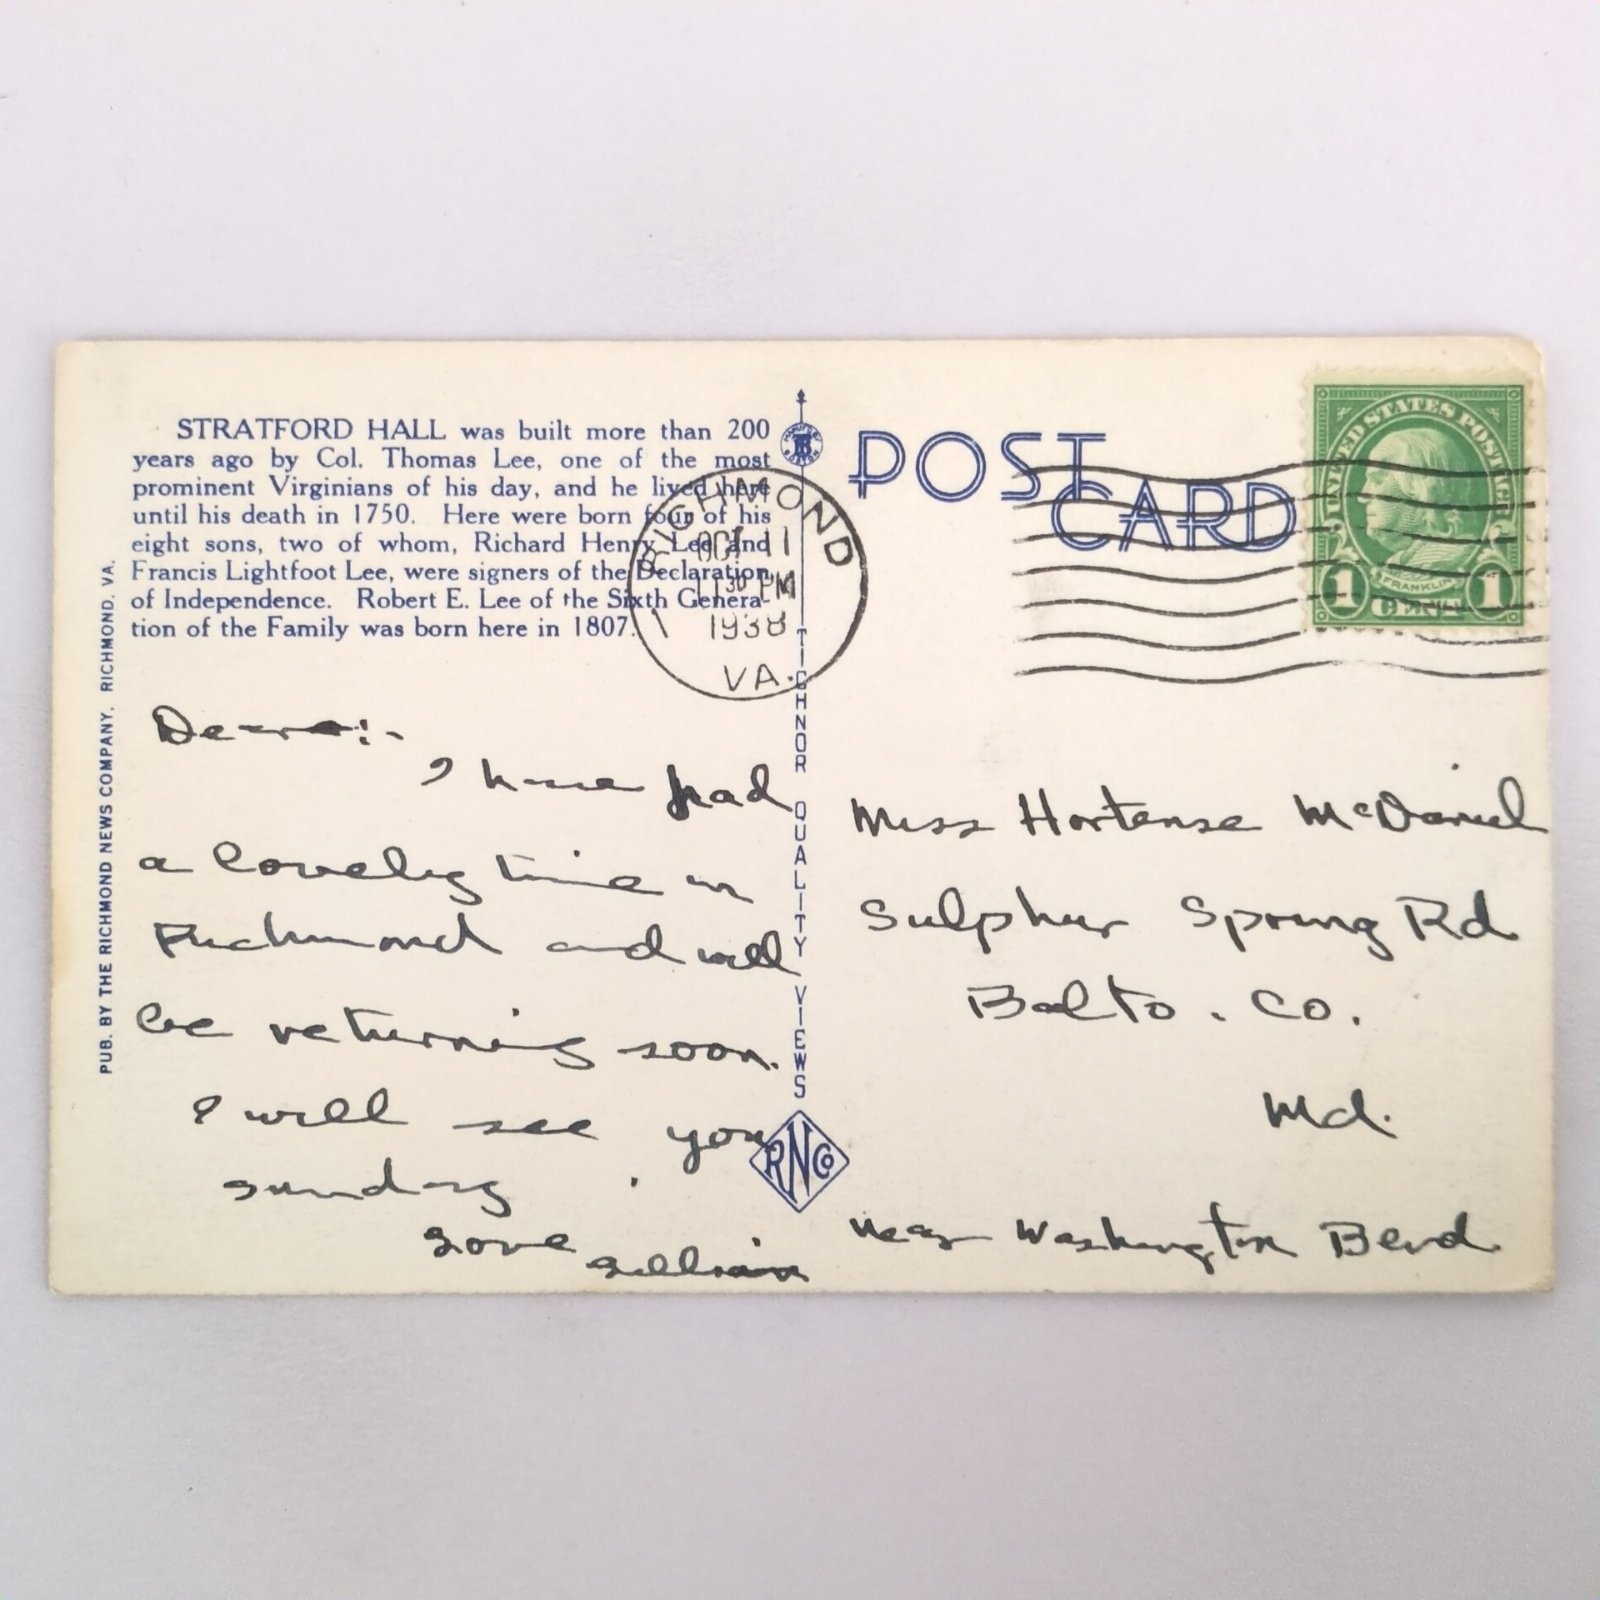 STRATFORD HALL was built more than 200
years ago by Col. Thomas Lee, one of the most
prominent Virginians of his day, and he lived here
until his death in 1750. Here were born four of his
eight sons, two of whom, Richard Henry Lee and
Francis Lightfoot Lee, were signers of the Declaration
of Independence. Robert E. Lee of the Sixth Genera-
tion of the Family was born here in 1807.
PUB. BY THE RICHMOND NEWS COMPANY, RICHMOND, VA.
I have had
a lovely time in
Richmond and will
be returning soon.
I will see you
Sunday.
Love
Lillian
TICHNOR QUALITY VIEWS
RNCo
RICHMOND
OCT 11
30 PM
1938
VA.
POST
CARD
UNITED STATES POSTAGE
FRANKLIN
1 CENT 1
Miss Hortense McDaniel
Sulphur Spring Rd
Balto. Co.
Md.
near Washington Blvd.